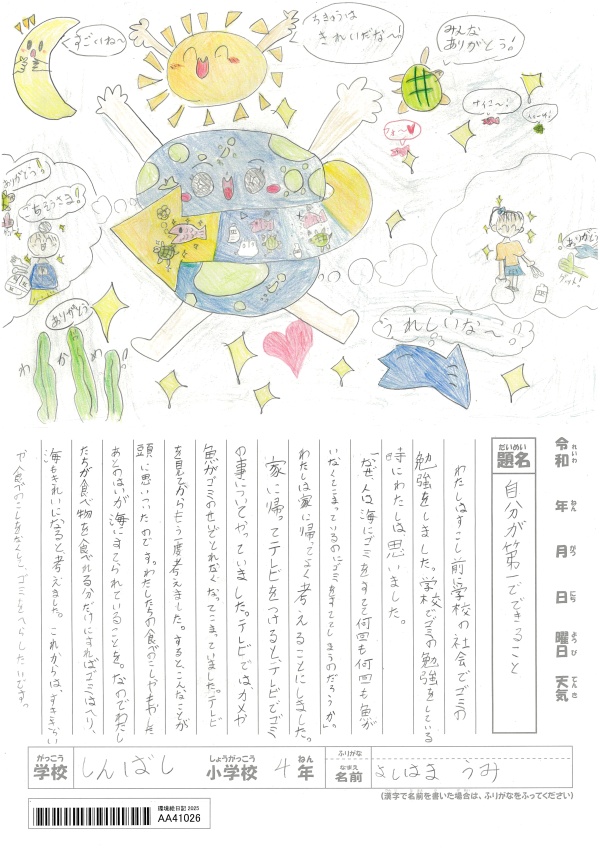 すごいね〜
ちきゅうは
きれいだな〜!
みんな
ありがとう!
サイコ〜!
フォ〜
ありがとう!
ごちそうさま!
ありがとう
わかめ
うれしいな〜!
ありがとう
ゲット!
令和 年 月 日 曜日 天気
れいわ ねん がつ にち ようび てんき
だいめい
題名
自分が第一でできること
わたしはすこし前に学校の社会でゴミの
勉強をしました。学校でゴミの勉強をしている
時にわたしは思いました。
「なぜ、人は海にゴミをすてて何回も何回も魚が
いなくてこまっているのにゴミをすててしまうのだろうか」
わたしは家に帰ってよく考えることにしました。
家に帰ってテレビをつけると、テレビでゴミ
の事についてやっていました。テレビでは、カメや
魚がゴミのせいでとれなくなってこまっていました。テレビ
を見てからもう一度考えました。すると、こんなことが
頭に思いついたのです。わたしたちの食べのこしやまわした
あとのはいが海にすてられていることを。なのでわたし
たちが食べ物を食べれる分だけにすればゴミはへり、
海もきれいになると考えました。これからは、すききらい
や食べのこしをなくして、ゴミをへらしたいです。
がっこう
学校
しんばし
しょうがっこう
小学校
4
ねん
年
ふりがな
なまえ
名前
よしはま うみ
(漢字で名前を書いた場合は、ふりがなをふってください)
環境絵日記 2025
AA41026